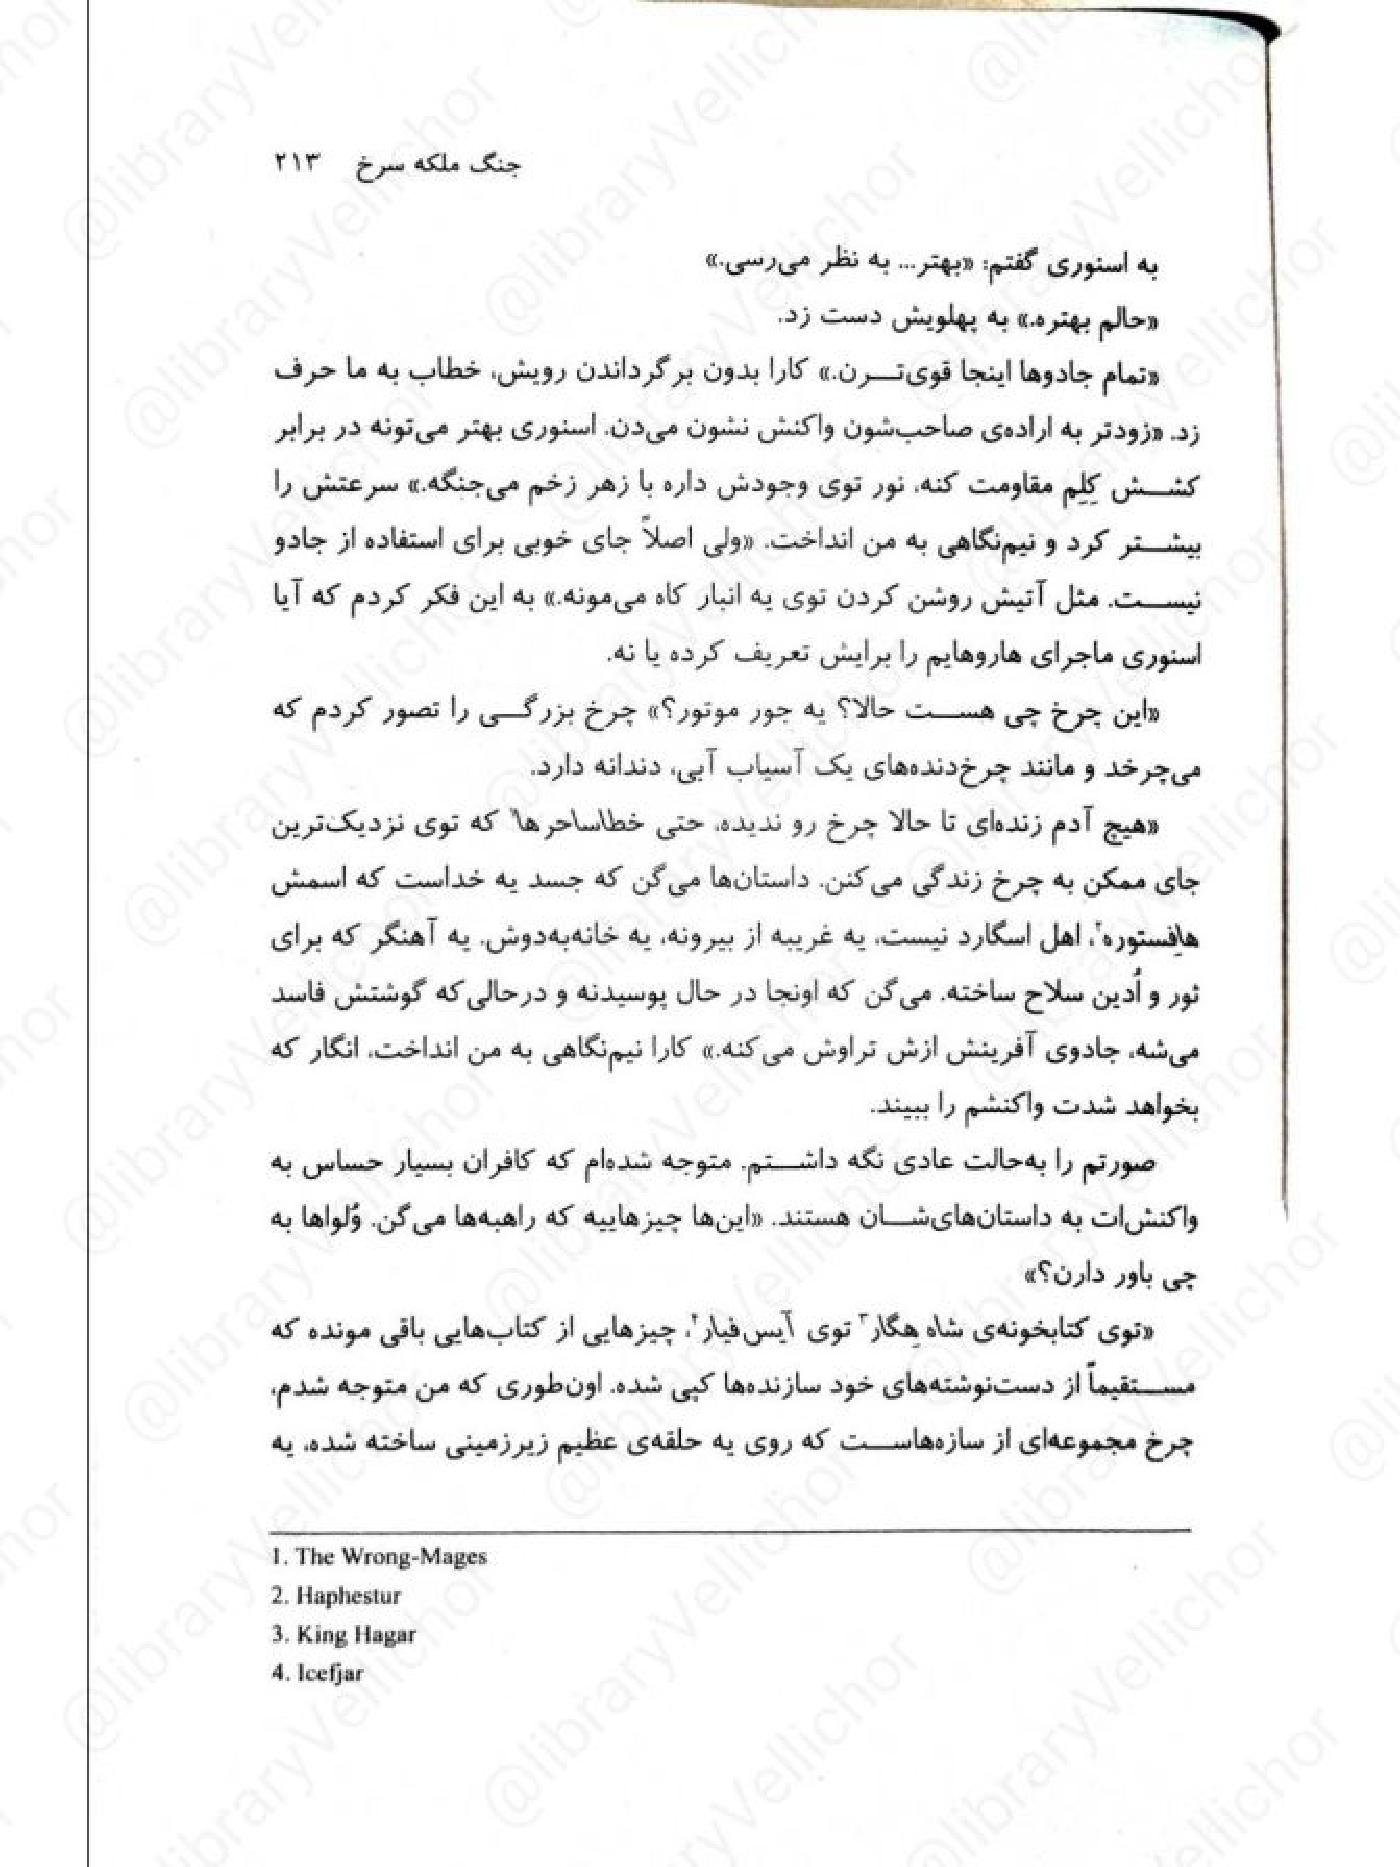 جنگ ملکه سرخ ۲۱۳
به اسنوری گفتم: «بهتر... به نظر می‌رسی.»
«حالم بهتره.» به پهلویش دست زد.
«تمام جادوها اینجا قوی‌ترن.» کارا بدون برگرداندن رویش، خطاب به ما حرف
زد. «زودتر به اراده‌ی صاحب‌شون واکنش نشون می‌دن. اسنوری بهتر می‌تونه در برابر
کشش کِلِم مقاومت کنه، نور توی وجودش داره با زهر زخم می‌جنگه.» سرعتش را
بیشتر کرد و نیم‌نگاهی به من انداخت. «ولی اصلاً جای خوبی برای استفاده از جادو
نیست. مثل آتیش روشن کردن توی یه انبار کاه می‌مونه.» به این فکر کردم که آیا
اسنوری ماجرای هاروهایم را برایش تعریف کرده یا نه.
«این چرخ چی هست حالا؟ یه جور موتور؟» چرخ بزرگی را تصور کردم که
می‌چرخد و مانند چرخ‌دنده‌های یک آسیاب آبی، دندانه دارد.
«هیچ آدم زنده‌ای تا حالا چرخ رو ندیده، حتی خطاساحرها۱ که توی نزدیک‌ترین
جای ممکن به چرخ زندگی می‌کنن. داستان‌ها می‌گن که جسد یه خداست که اسمش
هافِستوره۲، اهل اسگارد نیست، یه غریبه از بیرونه، یه خانه‌به‌دوش. یه آهنگر که برای
ثور و اُدین سلاح ساخته. می‌گن که اونجا در حال پوسیدنه و درحالی‌که گوشتش فاسد
می‌شه، جادوی آفرینش ازش تراوش می‌کنه.» کارا نیم‌نگاهی به من انداخت، انگار که
بخواهد شدت واکنشم را ببیند.
صورتم را به‌حالت عادی نگه داشتم. متوجه شده‌ام که کافران بسیار حساس به
واکنش‌ات به داستان‌های‌شان هستند. «این‌ها چیزهاییه که راهبه‌ها می‌گن. وُلواها به
چی باور دارن؟»
«توی کتابخونه‌ی شاه هِگار۳ توی آیس‌فیار۴، چیزهایی از کتاب‌هایی باقی مونده که
مستقیماً از دست‌نوشته‌های خود سازنده‌ها کپی شده. اون‌طوری که من متوجه شدم،
چرخ مجموعه‌ای از سازه‌هاست که روی یه حلقه‌ی عظیم زیرزمینی ساخته شده، یه
1. The Wrong-Mages
2. Haphestur
3. King Hagar
4. Icefjar
@libraryVellichor